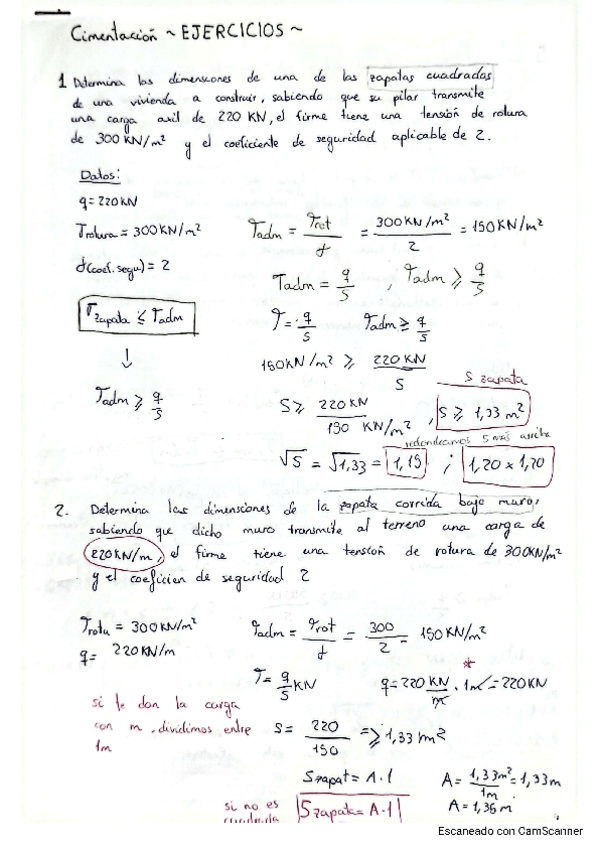 Cimentación ~ EJERCICIOS ~
1 Determina las dimensiones de una de las zapatas cuadradas
de una vivienda a construir, sabiendo que su pilar transmite
una carga axil de 220 KN, el firme tiene una tensión de rotura
de 300 KN/m² y el coeficiente de seguridad aplicable de 2.
Datos:
q = 220 KN
σrotura = 300 KN/m²
σadm = σrot / γ = 300 KN/m² / 2 = 150 KN/m²
γ(coef. segu) = 2
σadm = q/s ; σadm ≥ q/s
σzapata ≤ σadm
σ = q/s σadm ≥ q/s
↓
150 KN/m² ≥ 220 KN / S
S zapata
σadm ≥ q/s
S ≥ 220 KN / 150 KN/m² , S ≥ 1,33 m²
redondeamos 5 más arriba
√S = √1,33 = 1,15 ; 1,20 x 1,20
2. Determina las dimensiones de la zapata corrida bajo muro,
sabiendo que dicho muro transmite al terreno una carga de
220 KN/m, el firme tiene una tensión de rotura de 300 KN/m²
y el coeficien de seguridad 2
σrotu = 300 KN/m²
σadm = σrot / γ = 300 / 2 = 150 KN/m²
q = 220 KN/m
*
σ = q/s KN q = 220 KN/m · 1m = 220 KN
si te dan la carga
con m, dividimos entre
1m
S = 220 / 150 = ≥ 1,33 m²
Szapat = A · 1 A = 1,33m² / 1m = 1,33m
si no es
cuadrada
Szapata = A · 1 A = 1,35 m
Escaneado con CamScanner